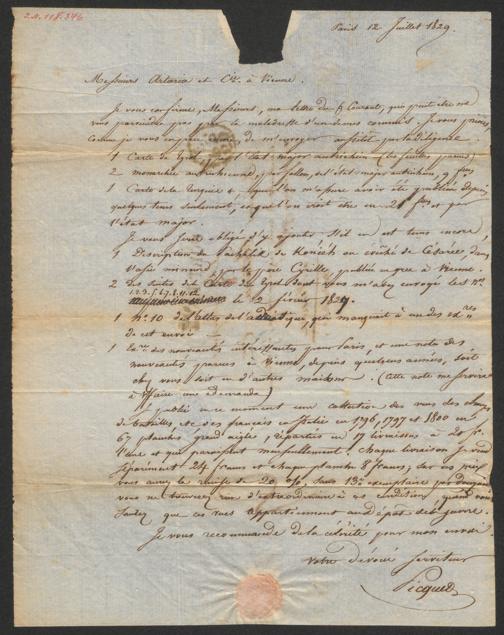 2.N.118.346
Paris 12 Juillet 1829
Messieurs Artaria et Cie. à Vienne.
Je vous confirme, Messieurs, ma lettre du 5 Courant, qui
vous parviendra pas par la maladresse d'un de mes commis. Je vous prierai,
comme je vous en prie de m'envoyer aussitôt par la diligence
1 Carte de l'état major autrichien (les feuilles parues)
2 monarchie autrichienne, par fallon, de l'état major autrichien, 9 flles.
1 Carte de la Turquie que l'on m'assure avoir été publiée depuis
quelques tems seulement, ce que l'on croit être en 21 flles. et par
l'état major.
Je vous serai obligé d'y ajouter s'il en est tems encore,
1 Description du Pachalik de Koniéh ou évêché de Césarée, dans
l'asie mineure, par le père Cyrille publiée en grec à Vienne.
2 Les suites de la Carte du Tyrol vous m'avez envoyé les Nos.
1.2.3.5.6.7.8.11.12
le 2 février 1829.
1 No. 10 de l'atlas de l'adriatique, qui manquait à un des exres
de cet envoi
1 Exre des nouveautés intéressantes pour Paris, et une note des
nouveautés parues à Vienne, depuis quelques années, soit
chez vous soit en d'autres maisons. (Cette note me servira
à vous faire une demande)
Je publie en ce moment une collection des vues des champs
de batailles, etc des français en Italie en 1796, 1797 et 1800 en
67 planches grand aigle, réparties en 17 livraisons à 20 fr.
l'une et qui paraissent mensuellement. Chaque livraison se vend
séparément 24 francs et chaque planche 8 francs; sur ces prix
vous aurez la remise de 20 %, sans 13e exemplaire par douzaine
vous ne trouverez rien d'extraordinaire à ces conditions, quand vous
saurez que ces vues appartiennent au dépôt de la guerre.
Je vous recommande de la célérité pour mon envoi.
Votre dévoué serviteur
Picquet